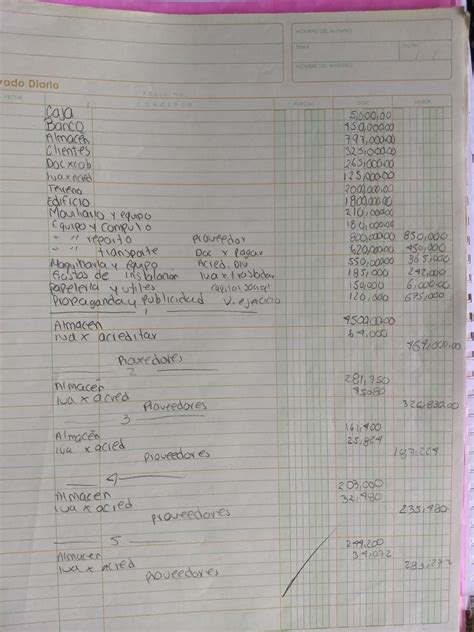 NOMBRE DEL ALUMNO
FECHA
NOMBRE DEL MAESTRO
Diario
FECHA CONCEPTOS PARCIAL DEBE HABER
Caja 5,000,00
Banco 450,000.00
Almacén 797,000.00
Clientes 325,000.00
Doc x cob 265,000.00
iva x acred 125,000.00
Terreno 200,000.00
Edificio 1,800,000.00
Mobiliario y equipo 210,000.00
Equipo y computo 180,000.00
" " reparto Proveedor 800,000.00 850,000
" " transporte Doc x pagar 450,000
Maquinaria y equipo Acred. Div 550,000.00 365,000
Gastos de instalación iva x trasladar 185,000
Papeleria y utiles capital social 150,000 6,000,00
Propaganda y Publicidad V. ejercicio 120,000 675,000
1
Almacén
iva x acreditar 64,000
464,000.00
Proveedores
2
Almacén 281,750
iva x acred 45080
Proveedores 326,830.00
3
Almacén 161,400
iva x acred 25,824
Proveedores 187,224
4
Almacén 203,000
iva x acred 32,480
Proveedores 235,480
5
Almacen
iva x acred
Proveedores